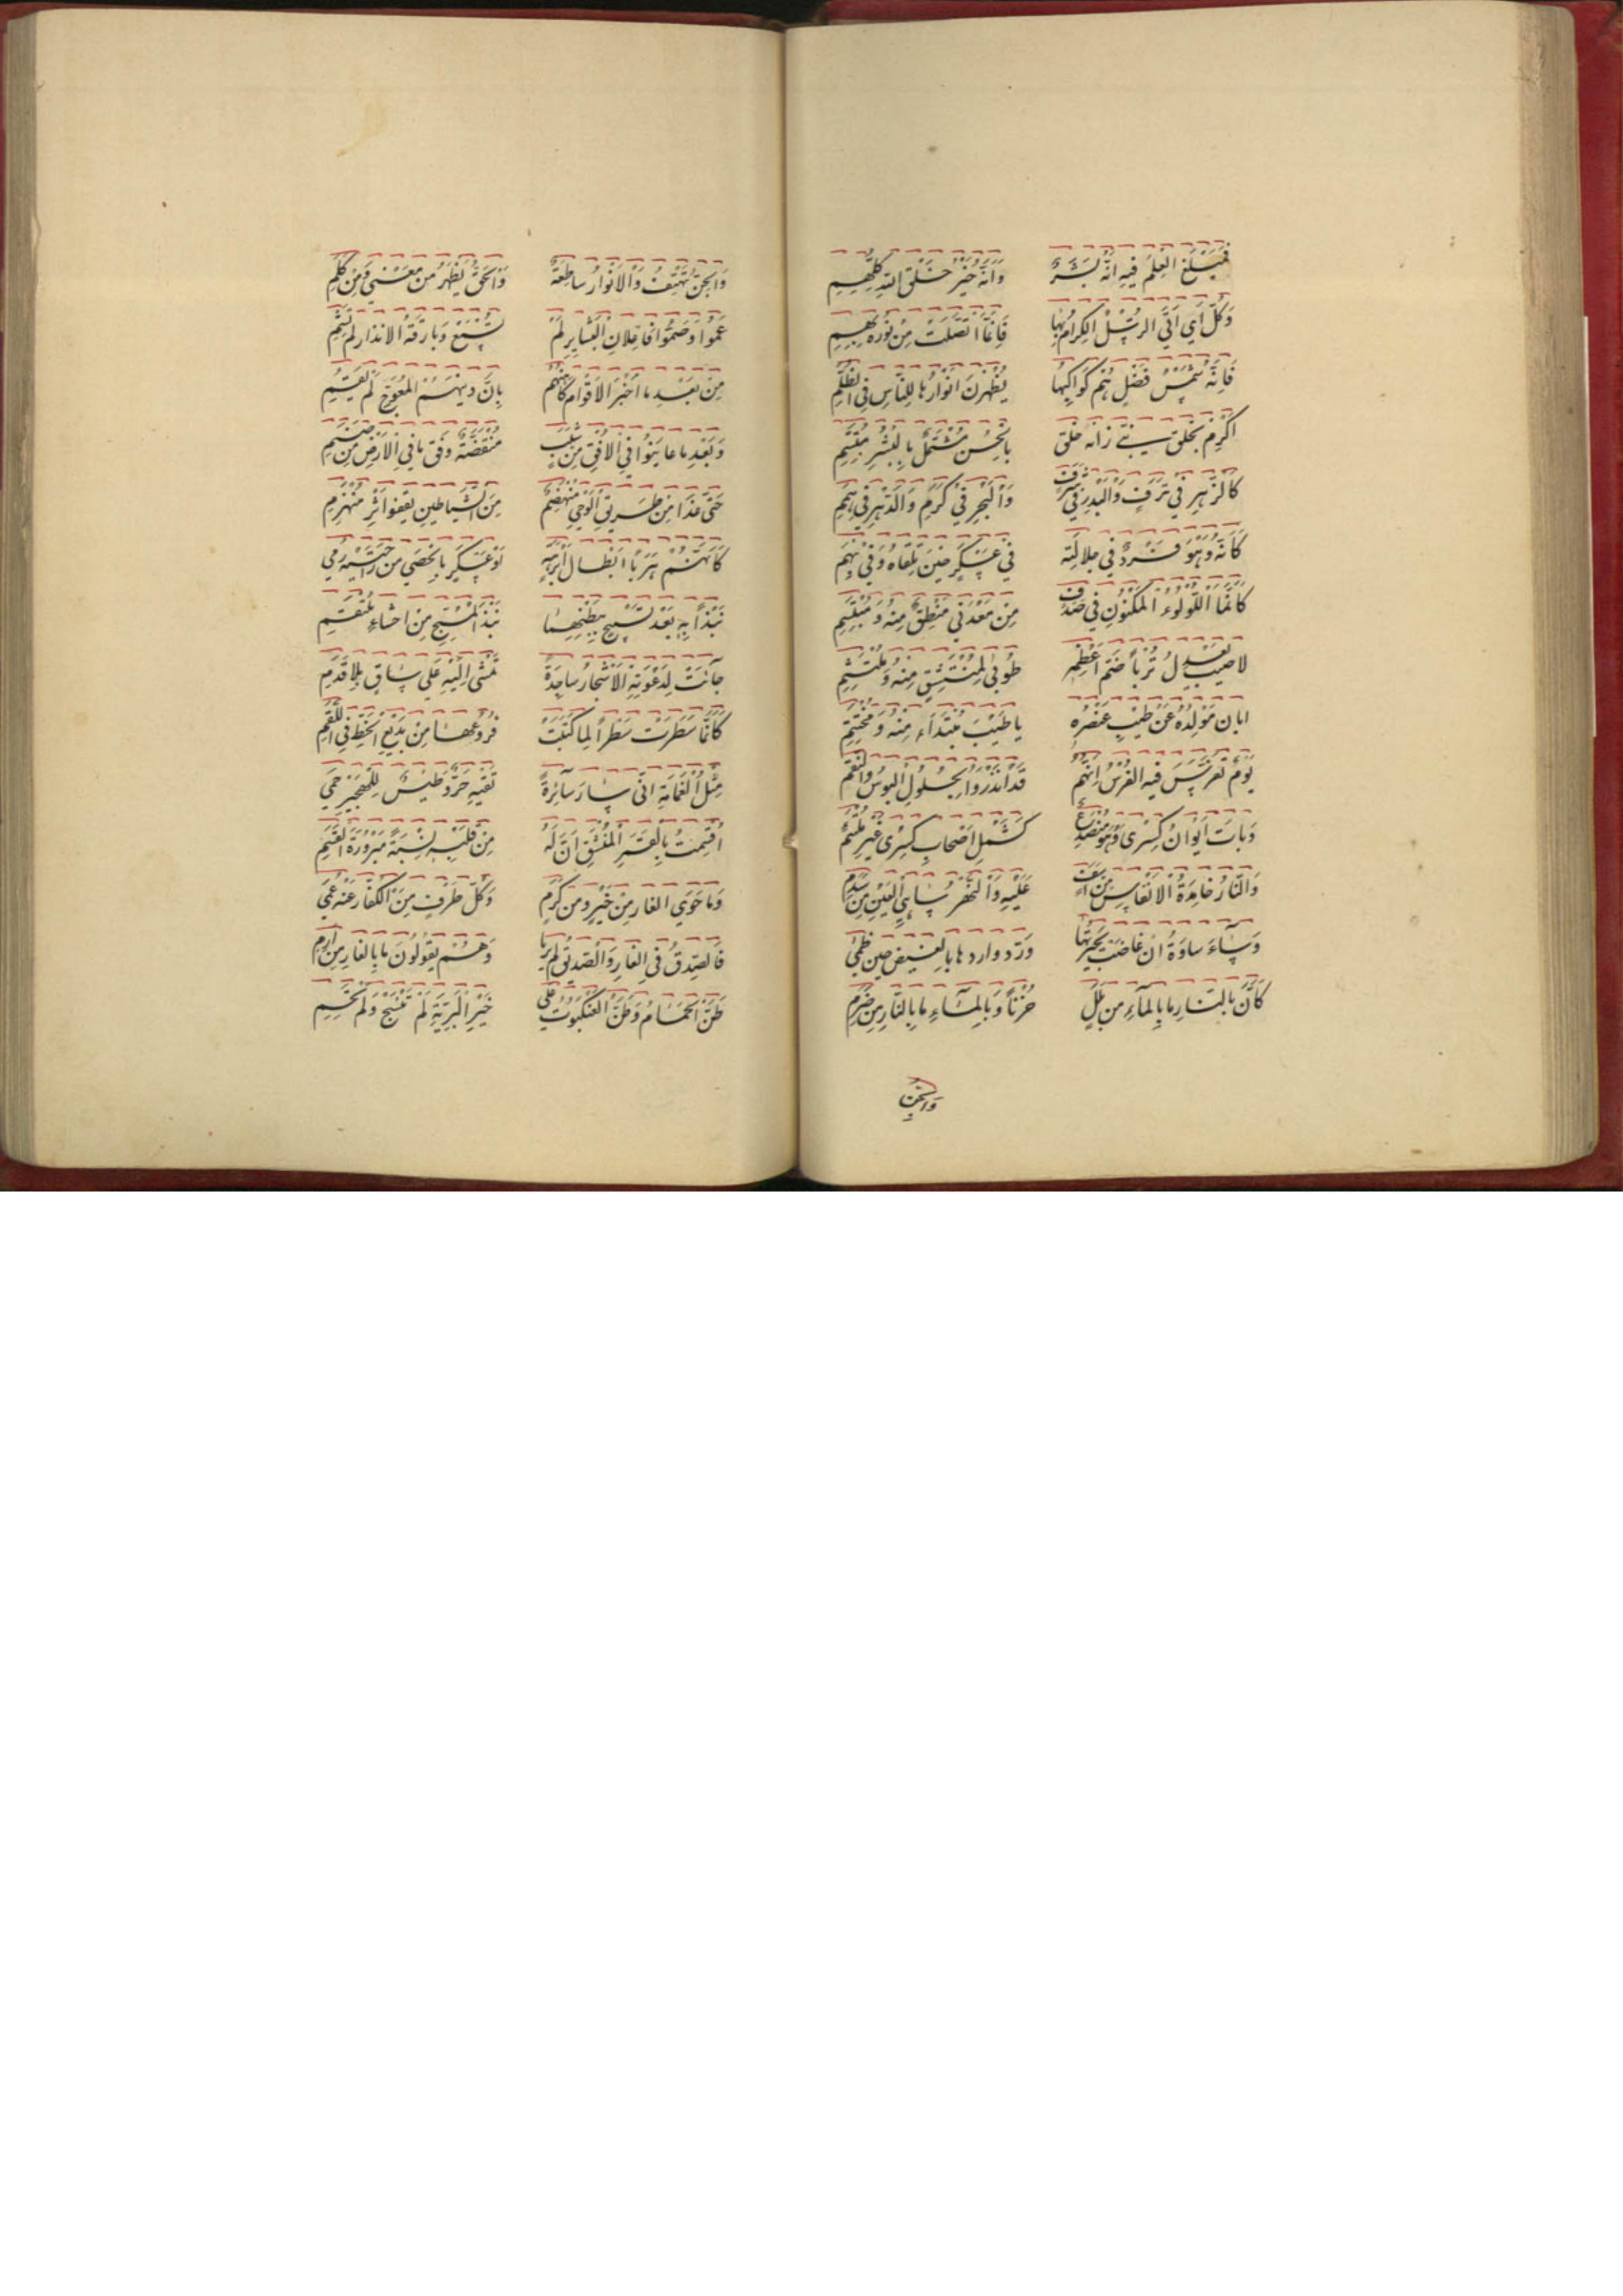 فَمَبْلَغُ الْعِلْمِ فِيهِ اَنَّهُ بَشَرٌ وَاَنَّهُ خَيْرُ خَلْقِ اللّهِ كُلِّهِمِ
وَكُلُّ آيٍ اَتَى الرُّسُلُ الْكِرَامُ بِهَا فَاِنَّمَا اتَّصَلَتْ مِنْ نُورِهِ بِهِمِ
فَاِنَّهُ شَمْسُ فَضْلٍ هُمْ كَوَاكِبُهَا يُظْهِرْنَ اَنْوَارَهَا لِلنَّاسِ فِي الظُّلَمِ
اَكْرِمْ بِخَلْقِ نَبِيٍّ زَانَهُ خُلُقٌ بِالْحُسْنِ مُشْتَمِلٍ بِالْبِشْرِ مُتَّسِمِ
كَالزَّهْرِ فِي تَرَفٍ وَالْبَدْرِ فِي شَرَفٍ وَالْبَحْرِ فِي كَرَمٍ وَالدَّهْرِ فِي هِمَمِ
كَاَنَّهُ وَهُوَ فَرْدٌ فِي جَلَالَتِهِ فِي عَسْكَرٍ حِينَ تَلْقَاهُ وَفِي بُهَمِ
كَاَنَّمَا اللُّؤْلُؤُ الْمَكْنُونُ فِي صَدَفٍ مِنْ مَعْدِنَيْ مَنْطِقٍ مِنْهُ وَمُبْتَسَمِ
لا طيب يَعْدِلُ تُرْباً ضَمَّ اَعْظُمَهُ طُوبَى لِمُنْتَشِقٍ مِنْهُ وَمُلْتَثِمِ
ابان مَوْلِدُهُ عَنْ طِيبِ عُنْصُرِهِ يا طِيبَ مُبْتَدَاءٍ مِنْهُ وَمُخْتَتَمِ
يَوْمٌ تَفَرَّسَ فِيهِ الْفُرْسُ اَنَّهُمُ قَدْ اُنْذِرُوا بِحُلُولِ الْبُوسِ وَالنِّقَمِ
وَبَاتَ اِيوَانُ كِسْرَى وَهُوَ مُنْصَدِعٌ كَشَمْلِ اَصْحَابِ كِسْرَى غَيْرَ مُلْتَئِمِ
وَالنَّارُ خَامِدَةُ الْاَنْفَاسِ مِنْ اَسَفٍ عَلَيْهِ وَالنَّهْرُ سَاهِي الْعَيْنِ مِنْ سَدَمِ
وَسَاءَ سَاوَةَ اَنْ غَاضَتْ بُحَيْرَتُهَا وَرُدَّ وَارِدُهَا بِالْغَيْضِ حِينَ ظَمِي
كَاَنَّ بِالنَّارِ مَا بِالْمَاءِ مِنْ بَلَلٍ حُزْناً وَبِالْمَاءِ مَا بِالنَّارِ مِنْ ضَرَمِ
وَالْجِنُّ
وَالْجِنُّ تَهْتِفُ وَالْاَنْوَارُ سَاطِعَةٌ وَالْحَقُّ يَظْهَرُ مِنْ مَعْنًى وَمِنْ كَلِمِ
عَمُوا وَصَمُّوا فَاِعْلَانُ الْبَشَايِرِ لَمْ تُسْمَعْ وَبَارِقَةُ الْاِنْذَارِ لَمْ تُشَمِ
مِنْ بَعْدِ مَا اَخْبَرَ الْاَقْوَامَ كَاهِنُهُمْ بِاَنَّ دِينَهُمُ الْمُعْوَجَّ لَمْ يَقُمِ
وَبَعْدِ مَا عَايَنُوا فِي الْاُفْقِ مِنْ شُهُبٍ مُنْقَضَّةٍ وَفْقَ مَا فِي الْاَرْضِ مِنْ صَنَمِ
حَتَّى غَدَا عَنْ طَرِيقِ الْوَحْيِ مُنْهَزِمٌ مِنَ الشَّيَاطِينِ يَقْفُوا اَثَرَ مُنْهَزِمِ
كَاَنَّهُمْ هَرَباً اَبْطَالُ اَبْرَهَةٍ اَوْ عَسْكَرٌ بِالْحَصَى مِنْ رَاحَتَيْهِ رُمِي
نَبْذاً بِهِ بَعْدَ تَسْبِيحٍ بِبَطْنِهِمَا نَبْذَ الْمُسَبِّحِ مِنْ اَحْشَاءِ مُلْتَقِمِ
جَائَتْ لِدَعْوَتِهِ الْاَشْجَارُ سَاجِدَةً تَمْشِي اِلَيْهِ عَلَى سَاقٍ بِلَا قَدَمِ
كَاَنَّمَا سَطَرَتْ سَطْراً لِمَا كَتَبَتْ فُرُوعُهَا مِنْ بَدِيعِ الْخَطِّ فِي اللَّقَمِ
مِثْلُ الْغَمَامَةِ اَنَّى سَارَ سَائِرَةً تَقِيهِ حَرَّ وَطِيسٍ لِلْهَجِيرِ حَمِي
اَقْسَمْتُ بِالْقَمَرِ الْمُنْشَقِّ اَنَّ لَهُ مِنْ قَلْبِهِ نِسْبَةً مَبْرُورَةَ الْقَسَمِ
وَمَا حَوَى الْغَارُ مِنْ خَيْرٍ وَمِنْ كَرَمٍ وَكُلُّ طَرْفٍ مِنَ الْكُفَّارِ عَنْهُ عَمِي
فَالصِّدْقُ فِي الْغَارِ وَالصِّدِّيقُ لَمْ يَرِيَا وَهُمْ يَقُولُونَ مَا بِالْغَارِ مِنْ اَرِمِ
ظَنُّوا الْحَمَامَ وَظَنُّوا الْعَنْكَبُوتَ عَلَى خَيْرِ الْبَرِيَّةِ لَمْ تَنْسُجْ وَلَمْ تَحُمِ